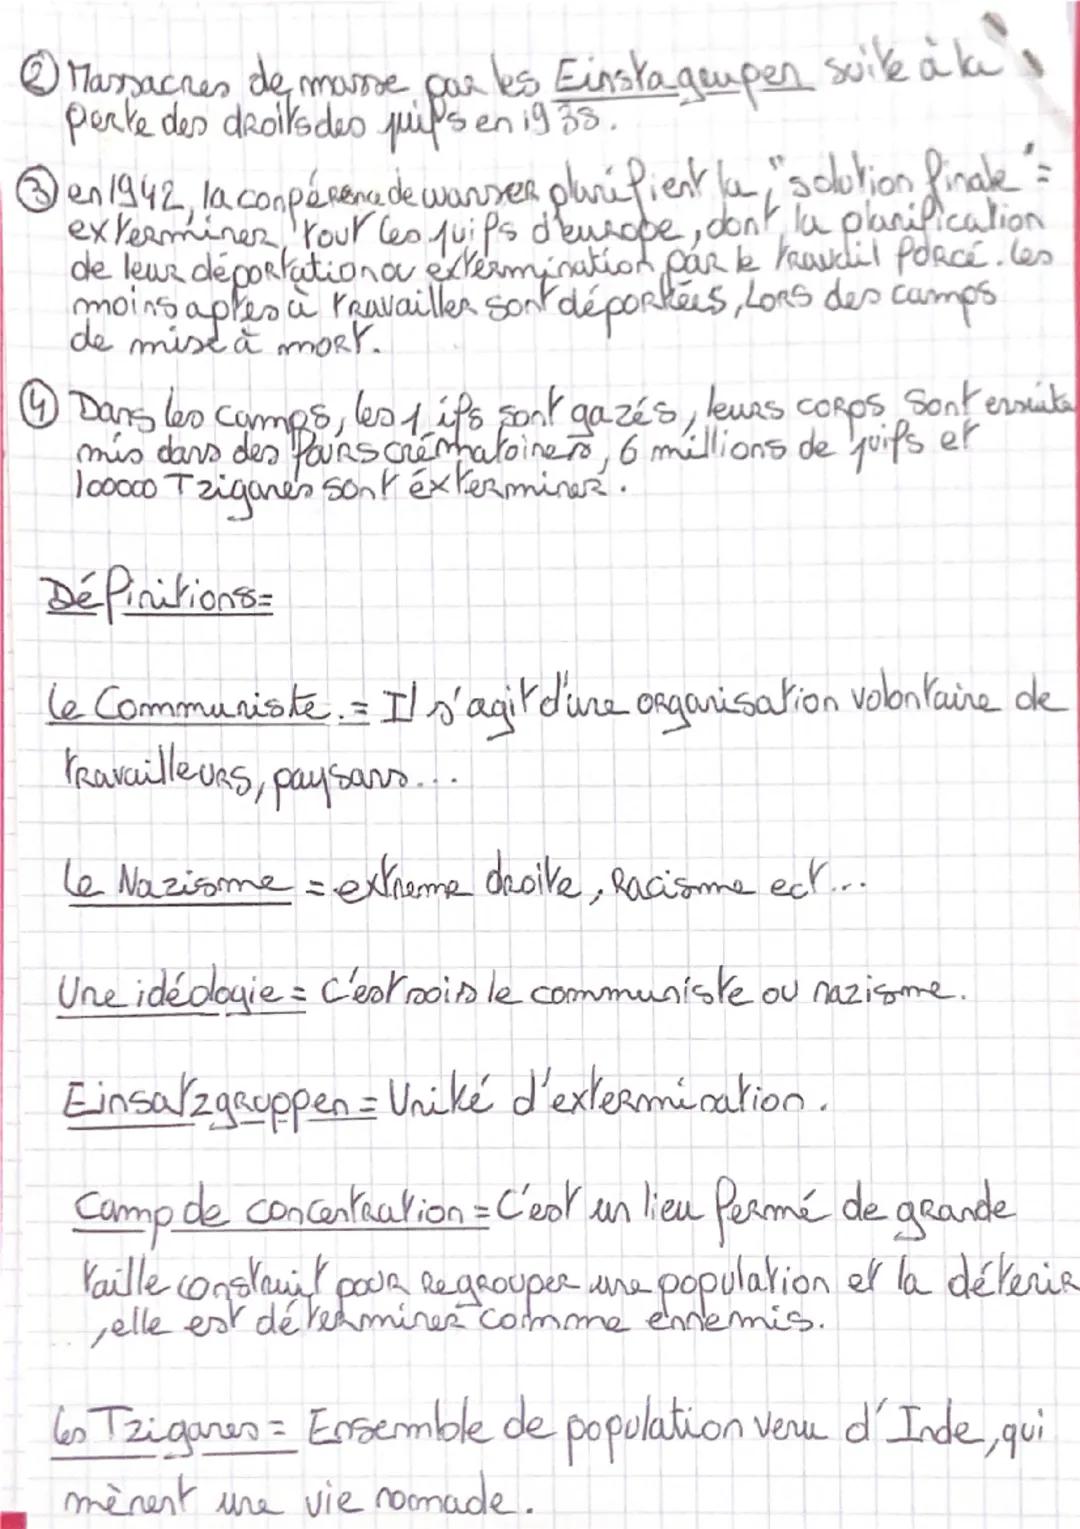 ② Massacres de masse par les Einstagrupen suite à la
perte des droits des juifs en 1938.
③ en 1942, la conférence de wanser planifient la "solution finale" =
exterminer tout les juifs d'europe, dont la planification
de leur déportation ou extermination par le travail forcé. les
moins aptes à travailler sont déportées, LORS des camps
de mise à mort.
④ Dans les camps, les juifs sont gazés, leurs corps sont ensuite
mis dans des fours crématoires, 6 millions de juifs et
100000 Tziganes sont éxterminer.
Définitions=
le Communiste.= Il s'agit d'une organisation volontaire de
travailleurs, paysans...
le Nazisme = extreme droite, Racisme ect...
Une idéologie = C'est sois le communiste ou nazisme.
Einsatzgruppen = Unité d'extermination.
Camp de concentration = C'est un lieu fermé de grande
taille construit pour regrouper une population et la détenir
,elle est déterminer comme ennemis.
les Tziganes = Ensemble de population venu d'Inde, qui
mènent une vie nomade.